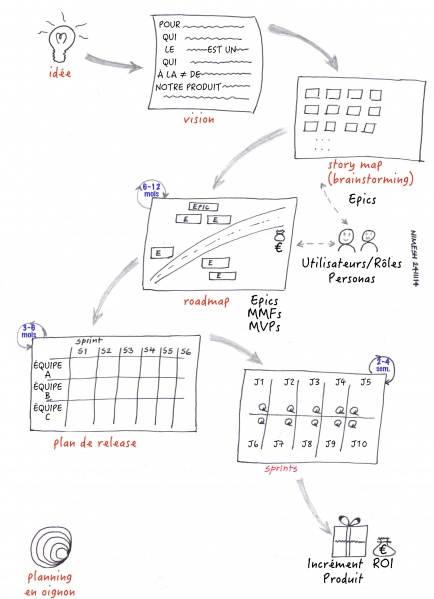 idée
POUR
QUI
LE EST UN
QUI
À LA ≠ DE
NOTRE PRODUIT
vision
story map
(brainstorming)
Epics
6-12
mois
EPIC
E E
E
E
E
€
Utilisateurs/Rôles
Personas
NIMESH 24/11/14
roadmap
Epics
MMFs
MVPs
3-6
mois
sprint
S1 S2 S3 S4 S5 S6
ÉQUIPE
A
ÉQUIPE
B
ÉQUIPE
C
plan de release
2-4
sem.
J1 J2 J3 J4 J5
J6 J7 J8 J9 J10
sprints
€
Incrément
Produit
ROI
planning
en oignon